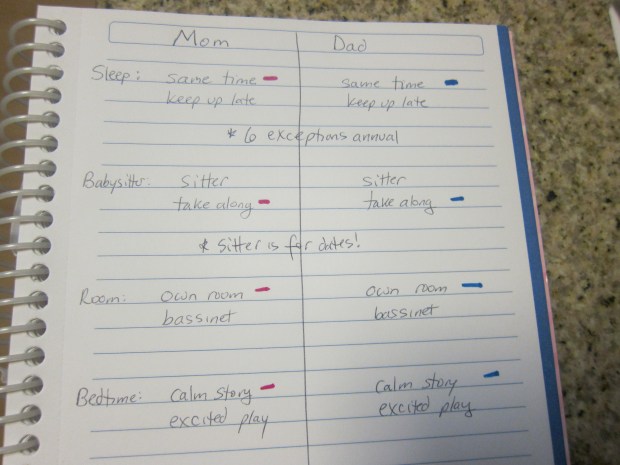 Mom Dad
Sleep: same time - same time -
keep up late keep up late
* 6 exceptions annual
Babysitter: Sitter sitter
take along - take along -
* Sitter is for dates!
Room: own room - own room -
bassinet bassinet
Bedtime: Calm story - Calm story -
excited play excited play